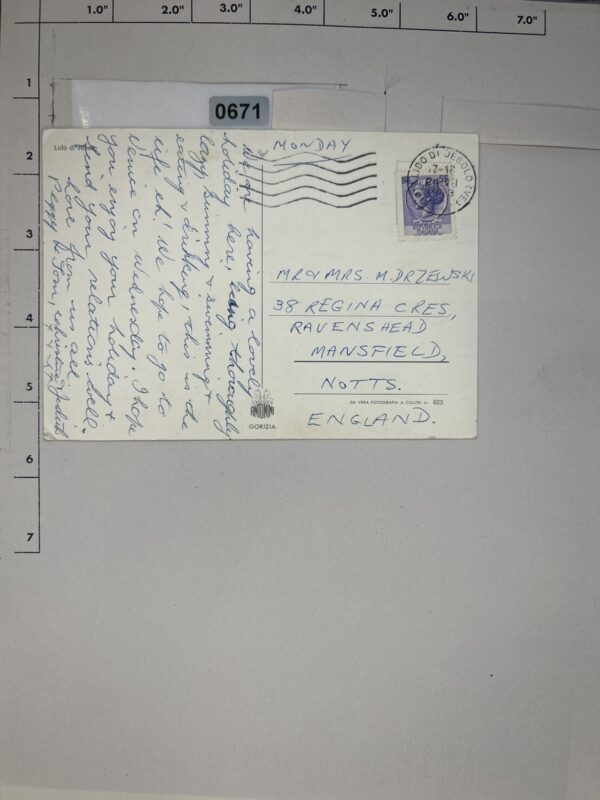 1.0" 2.0" 3.0" 4.0" 5.0" 6.0" 7.0"
1
2
3
4
5
6
7
0671
Lido di Jesolo
MONDAY
We are having a lovely
holiday here, being thoroughly
lazy, sunning & swimming &
eating & drinking, this is the
life eh! We hope to go to
Venice on Wednesday. I hope
you enjoy your holiday &
find your relations well.
Love from us all
Peggy & Tom, Christine Judith
LIDO DI JESOLO (VE)
17-18
POSTE
REPUBBLICA
ITALIANA
MR & MRS. M. DRZEWSKI
38 REGINA CRES,
RAVENSHEAD
MANSFIELD,
NOTTS.
ENGLAND.
DA VERA FOTOGRAFIA A COLORI n. 623
GORIZIA